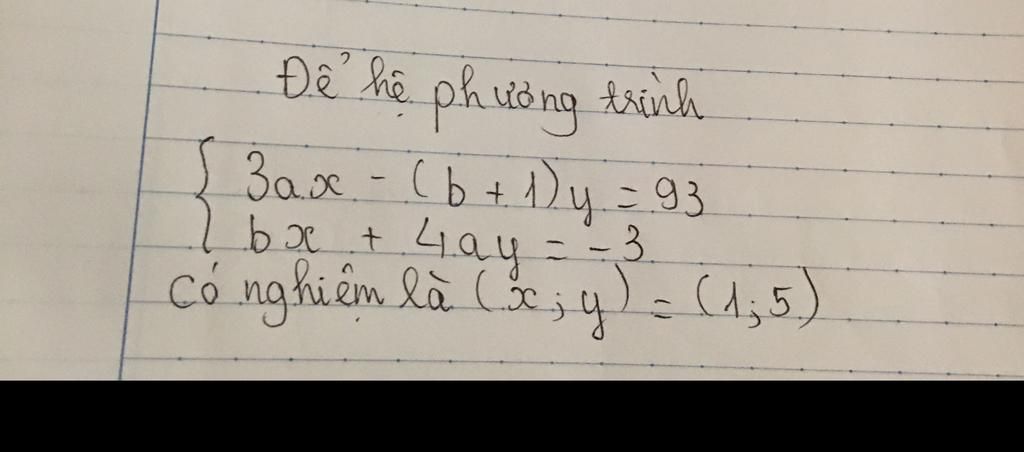 Để hệ phương trình
{ 3ax - (b + 1)y = 93
bx + 4ay = -3
có nghiệm là (x; y) = (1; 5)